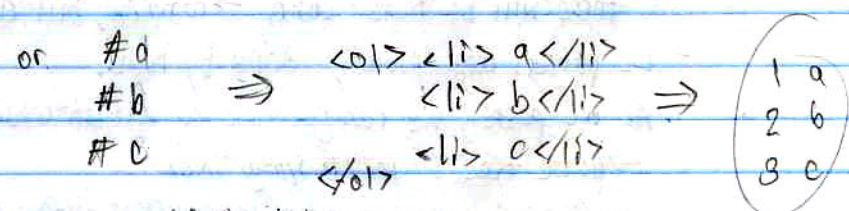 or # a ⇒ <ol> <li> a </li> ⇒ 1 a
# b <li> b </li> 2 b
# c <li> c </li> 3 c
</ol>